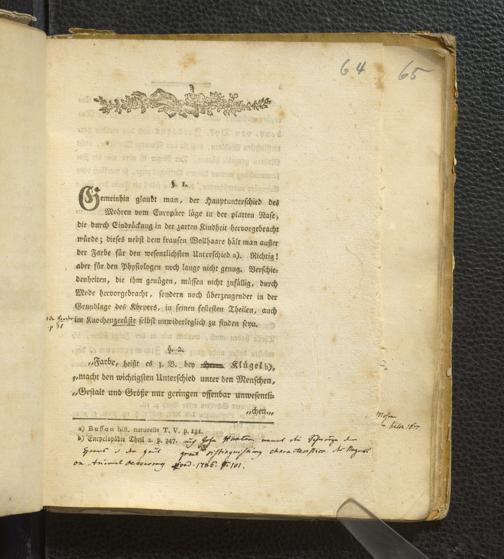 64 65
§. 1.
Gemeinhin glaubt man, der Hauptunterschied des
Mohren vom Europäer läge in der platten Nase,
die durch Eindrückung in der zarten Kindheit hervorgebracht
würde; dieses nebst dem krausen Wollhaare hält man ausser
der Farbe für den wesentlichsten Unterschied a). Richtig!
aber für den Physiologen noch lange nicht genug. Verschie-
denheiten, die ihm genügen, müssen nicht zufällig, durch
Mode hervorgebracht, sondern noch überzeugender in der
Grundlage des Körpers, in seinen festesten Theilen, auch
im Knochengerüste selbst unwiderleglich zu finden seyn.
§. 2.
„Farbe, heißt es z. B. bey Klügel b),
„macht den wichtigsten Unterschied unter den Menschen,
„Gestalt und Größe nur geringen offenbar unwesentli-
„chen„
a) Buffon hist. naturelle T. V. p. 121.
b) Encyclopädie Theil 2. p. 247. auf John Hunter nennt die
great distinguishing characteristics der
on Animal Oeconomy 1786. p. 101.